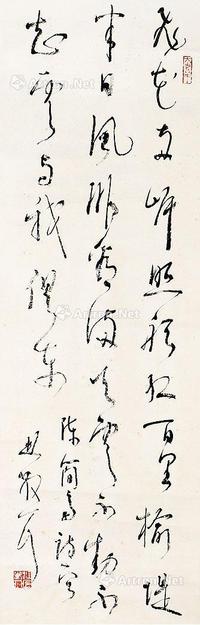 飛花兩岸照船紅百里榆堤
半日風卧看滿天雲不動不
知雲與我俱東
陳簡齋詩
林散耳